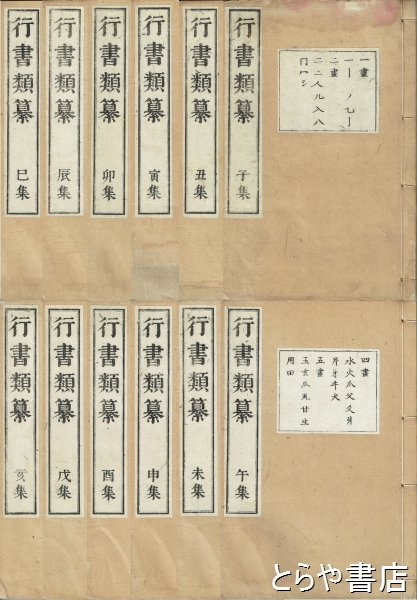 一畫
一丨丿乙亅
二畫
二亠人儿入八
冂冖冫
行書類纂 子集
行書類纂 丑集
行書類纂 寅集
行書類纂 卯集
行書類纂 辰集
行書類纂 巳集
四畫
水火爪父爻爿
片牙牛犬
五畫
玉玄瓜瓦甘生
用田
行書類纂 午集
行書類纂 未集
行書類纂 申集
行書類纂 酉集
行書類纂 戌集
行書類纂 亥集
とらや書店